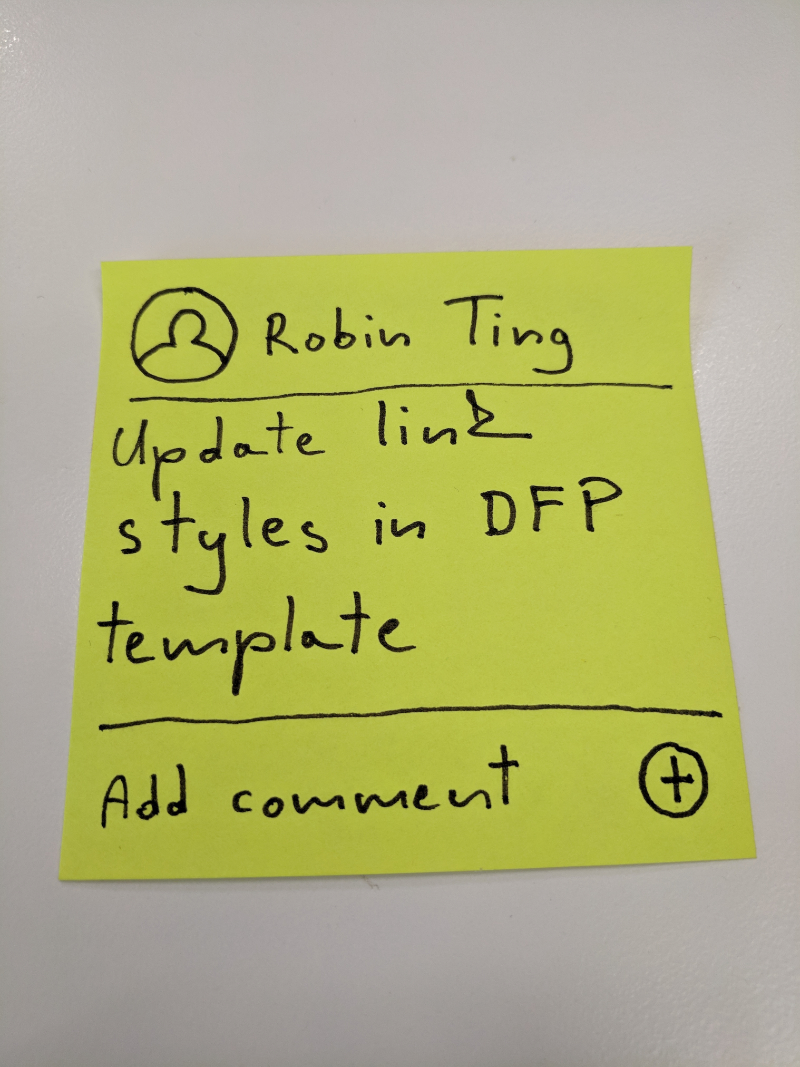 Robin Ting
Update link
styles in DFP
template
Add comment